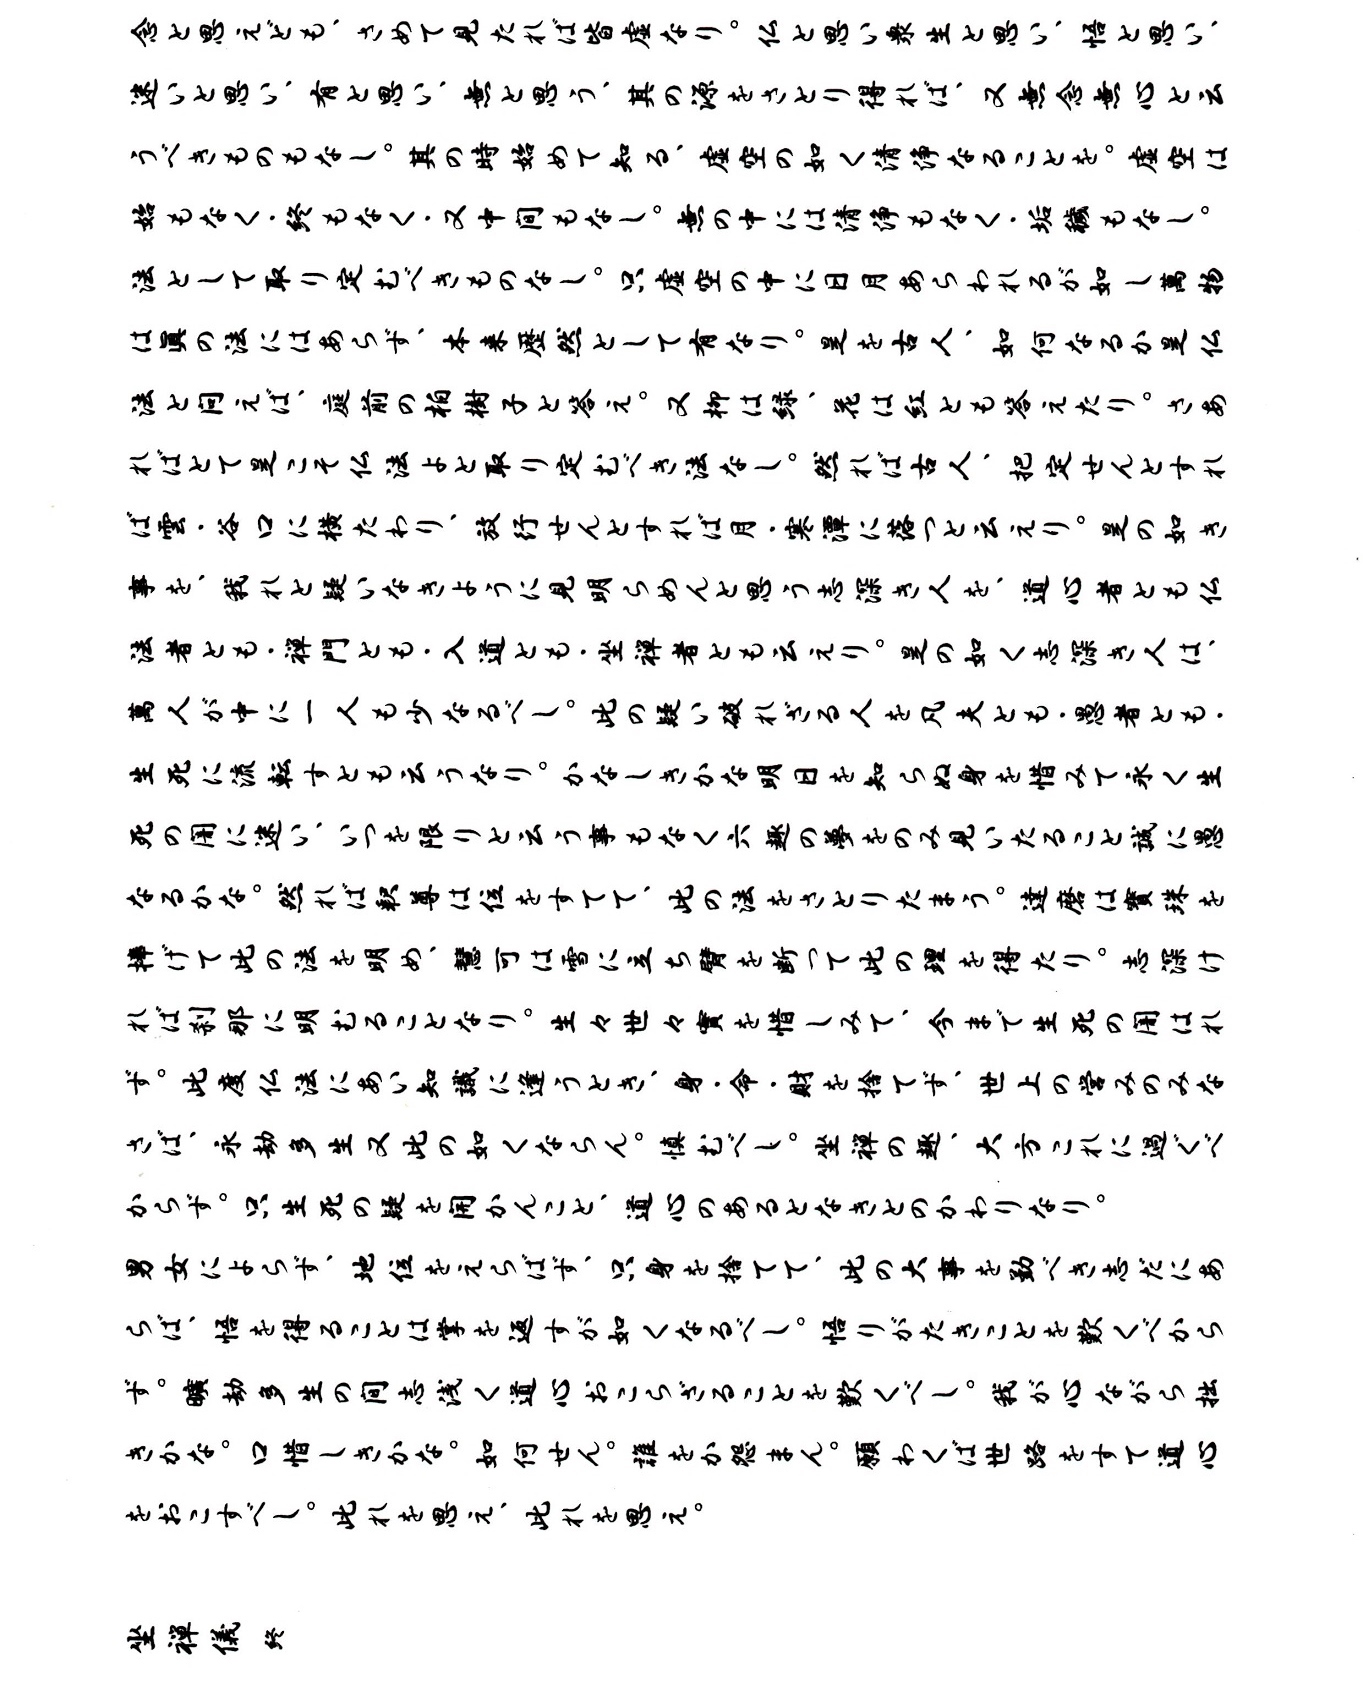 念と思えども、さめて見たれば皆虚なり。仏と思い衆生と思い、悟と思い、
迷いと思い、有と思い、無と思う、其の源をさとり得れば、又無念無心と云
うべきものもなし。其の時始めて知る、虚空の如く清浄なることを。虚空は
始もなく・終もなく・又中間もなし。無の中には清浄もなく・垢穢もなし。
法として取り定むべきものなし。只虚空の中に日月あらわれるが如し萬物
は眞の法にはあらず、本来歴然として有なり。是を古人、如何なるか是仏
法と問えば、庭前の柏樹子と答え。又柳は緑、花は紅とも答えたり。さあ
ればとて是こそ仏法よと取り定むべき法なし。然れば古人、把定せんとすれ
ば雲・谷口に横たわり、放行せんとすれば月・寒潭に落つと云えり。是の如き
事を、我れと疑いなきように見明らめんと思う志深き人を、道心者とも仏
法者とも・禅門とも・入道とも・坐禅者とも云えり。是の如く志深き人は、
萬人が中に一人も少なるべし。此の疑い破れざる人を凡夫とも・愚者とも・
生死に流転すとも云うなり。かなしきかな明日を知らぬ身を惜みて永く生
死の闇に迷い、いつを限りと云う事もなく六趣の夢をのみ見いたること誠に愚
なるかな。然れば釈尊は位をすてて、此の法をさとりたまう。達磨は寶珠を
捧げて此の法を明め、慧可は雪に立ち臂を断って此の理を得たり。志深け
れば刹那に明むることなり。生々世々實を惜しみて、今まで生死の闇はれ
ず。此度仏法にあい知識に逢うとき、身・命・財を捨てず、世上の営みのみな
さば、永劫多生又此の如くならん。慎むべし。坐禅の趣、大方これに過ぐべ
からず。只生死の疑を開かんこと、道心のあるとなきとのかわりなり。
男女によらず、地位をえらばず、只身を捨てて、此の大事を勤べき志だにあ
らば、悟を得ることは掌を返すが如くなるべし。悟りがたきことを歎くべから
ず。曠劫多生の間志浅く道心おこらざることを歎くべし。我が心ながら拙
きかな。口惜しきかな。如何せん。誰をか怨まん。願わくば世路をすて道心
をおこすべし。此れを思え、此れを思え。
坐禅儀 終